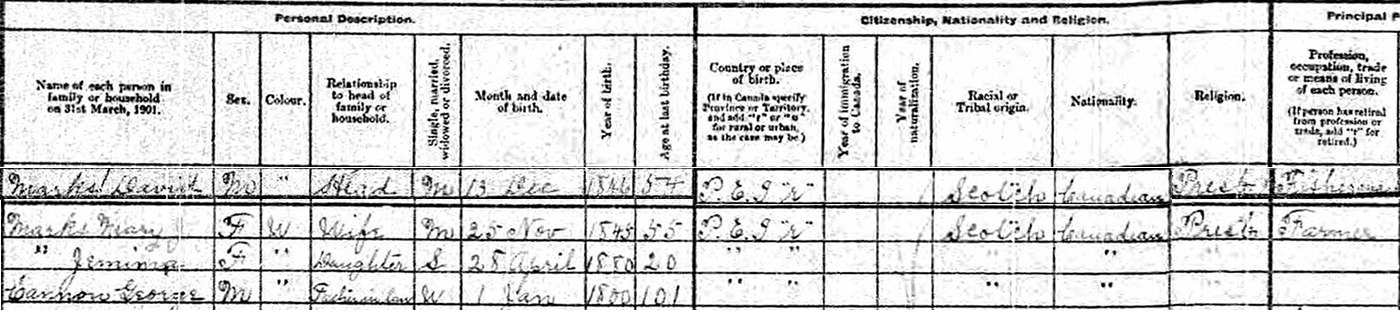 Personal Description. Citizenship, Nationality and Religion. Principal
Name of each person in family or household on 31st March, 1901. Sex. Colour. Relationship to head of family or household. Single, married, widowed or divorced. Month and date of birth. Year of birth. Age at last birthday. Country or place of birth. (If in Canada specify Province or Territory, and add "r" or "u" for rural or urban, as the case may be.) Year of immigration to Canada. Year of naturalization. Racial or Tribal origin. Nationality. Religion. Profession, occupation, trade or means of living of each person. (If person has retired from profession or trade, add "r" for retired.)
Marks David M " Head M 13 Dec 1846 54 P.E.I "r" Scotch Canadian Presb
Marks Mary F W Wife M 25 Nov 1845 55 P.E.I "r" Scotch Canadian Presb Farmer
" Jemima F " Daughter S 28 April 1880 20 " " " "
Cannon George M " Father in law W 1 Jan 1800 101 " " " "